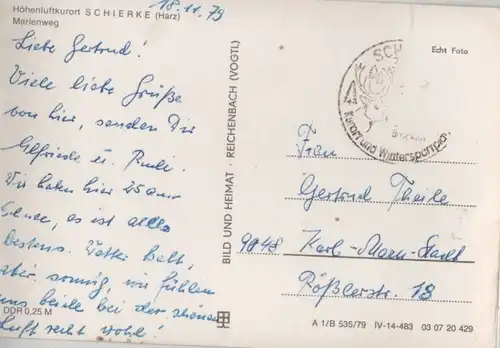 Höhenluftkurort SCHIERKE (Harz)
Marienweg
18.11.79
Liebe Gertrud!
Viele liebe Grüße
von hier, senden Dir
Elfriede u. Rudi.
Wir haben hier 25 cm
Schnee, es ist alles
bestens. Wetter kalt,
aber sonnig, wir fühlen
uns beide bei der schönen
Luft recht wohl!
DDR 0,25 M
BILD UND HEIMAT · REICHENBACH (VOGTL)
Echt Foto
SCH
Kurort und Wintersportpl
Frau
Gertrud Theile
9048 Karl-Marx-Stadt
Rößlerstr. 18
A 1/B 535/79 IV-14-483 03 07 20 429